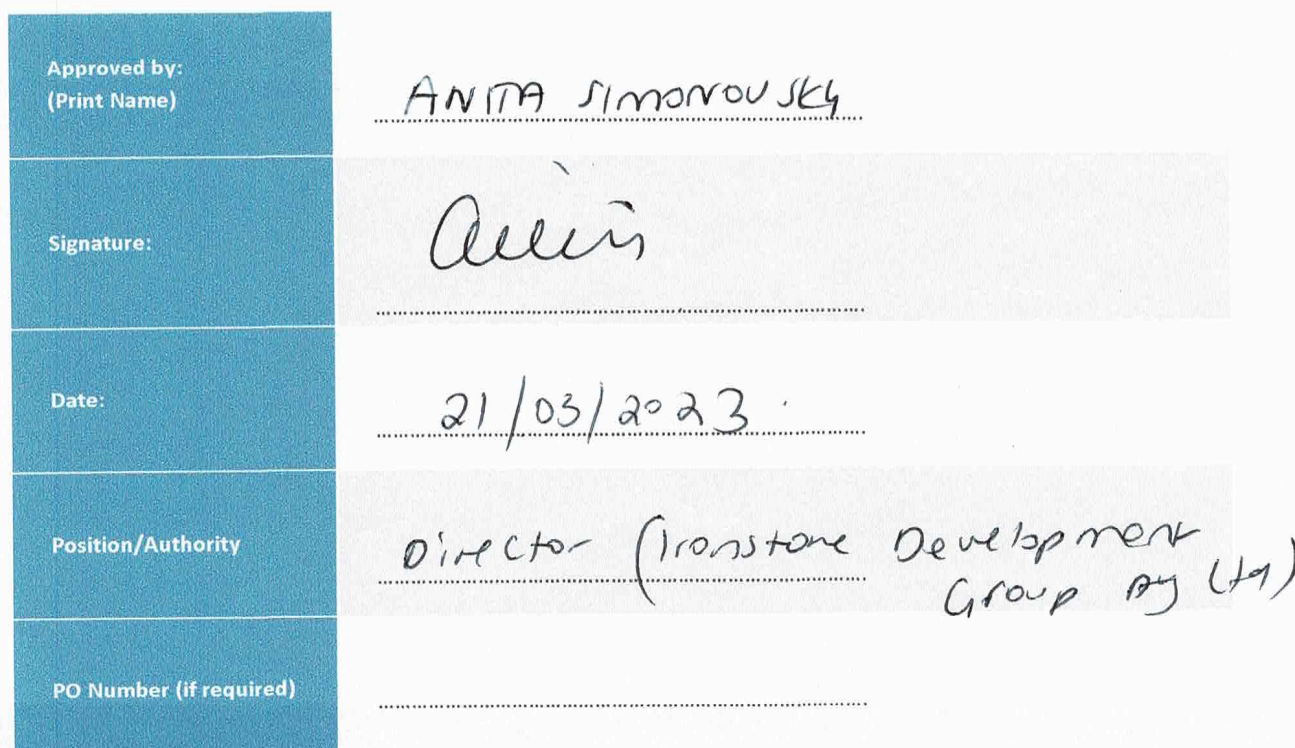 Approved by:
(Print Name)
ANITA SIMONOVSKY
Signature:
Date:
21/03/2023
Position/Authority
Director (Ironstone Development
Group Pty Ltd)
PO Number (if required)